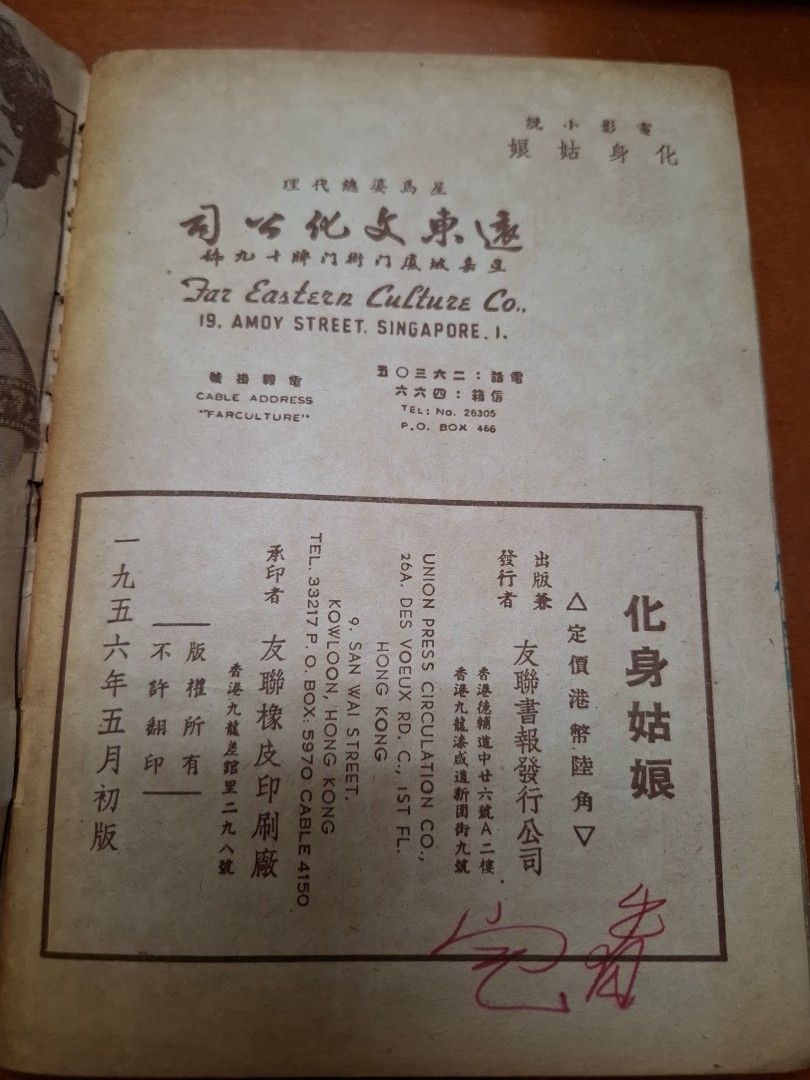 電影小說
化身姑娘
星馬婆總代理
遠東文化公司
星嘉坡廈門街門牌十九號
Far Eastern Culture Co.,
19, AMOY STREET. SINGAPORE. 1.
電報掛號
CABLE ADDRESS
"FARCULTURE"
電話：二六三〇五
信箱：四六六
TEL: No. 26305
P.O. BOX 466
化身姑娘
△定價港幣陸角▽
出版兼
發行者
友聯書報發行公司
香港德輔道中廿六號A二樓
香港九龍漆咸道新圍街九號
UNION PRESS CIRCULATION CO.,
26A. DES VOEUX RD. C., 1ST FL.
HONG KONG
9. SAN WAI STREET.
KOWLOON, HONG KONG
TEL. 33217 P. O. BOX: 5970 CABLE 4150
承印者
友聯橡皮印刷廠
香港九龍差館里二九八號
版權所有
不許翻印
一九五六年五月初版